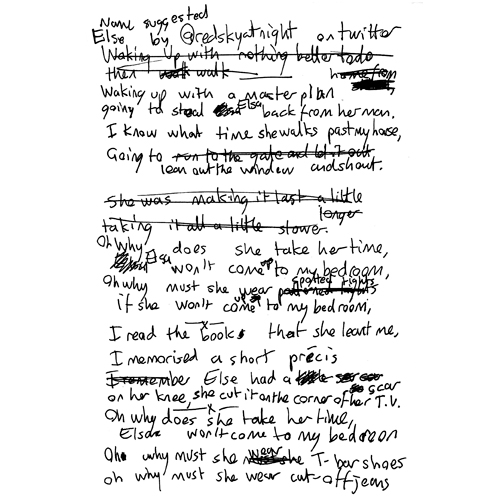 Name suggested
Else by @redskyatnight on twitter
Waking up with nothing better todo
then walk walk home from
Waking up with a masterplan
going to steal Elsa back from her man.
I know what time she walks past my house,
Going to run to the gate and let it out
lean out the window and shout.
She was making it last a little
longer
taking it all a little slower.
Oh Why does she take her time,
Elsa won't come up to my bedroom,
Oh why must she wear spotted tights
if she won't come up to my bedroom,
I read the books that she leant me,
I memorised a short précis
I remember Else had a scar
on her knee, she cut it on the corner of her T.V.
Oh why does she take her time,
Elsa won't come to my bedroom
Oh why must she wear T-bar shoes
oh why must she wear cut-off jeans